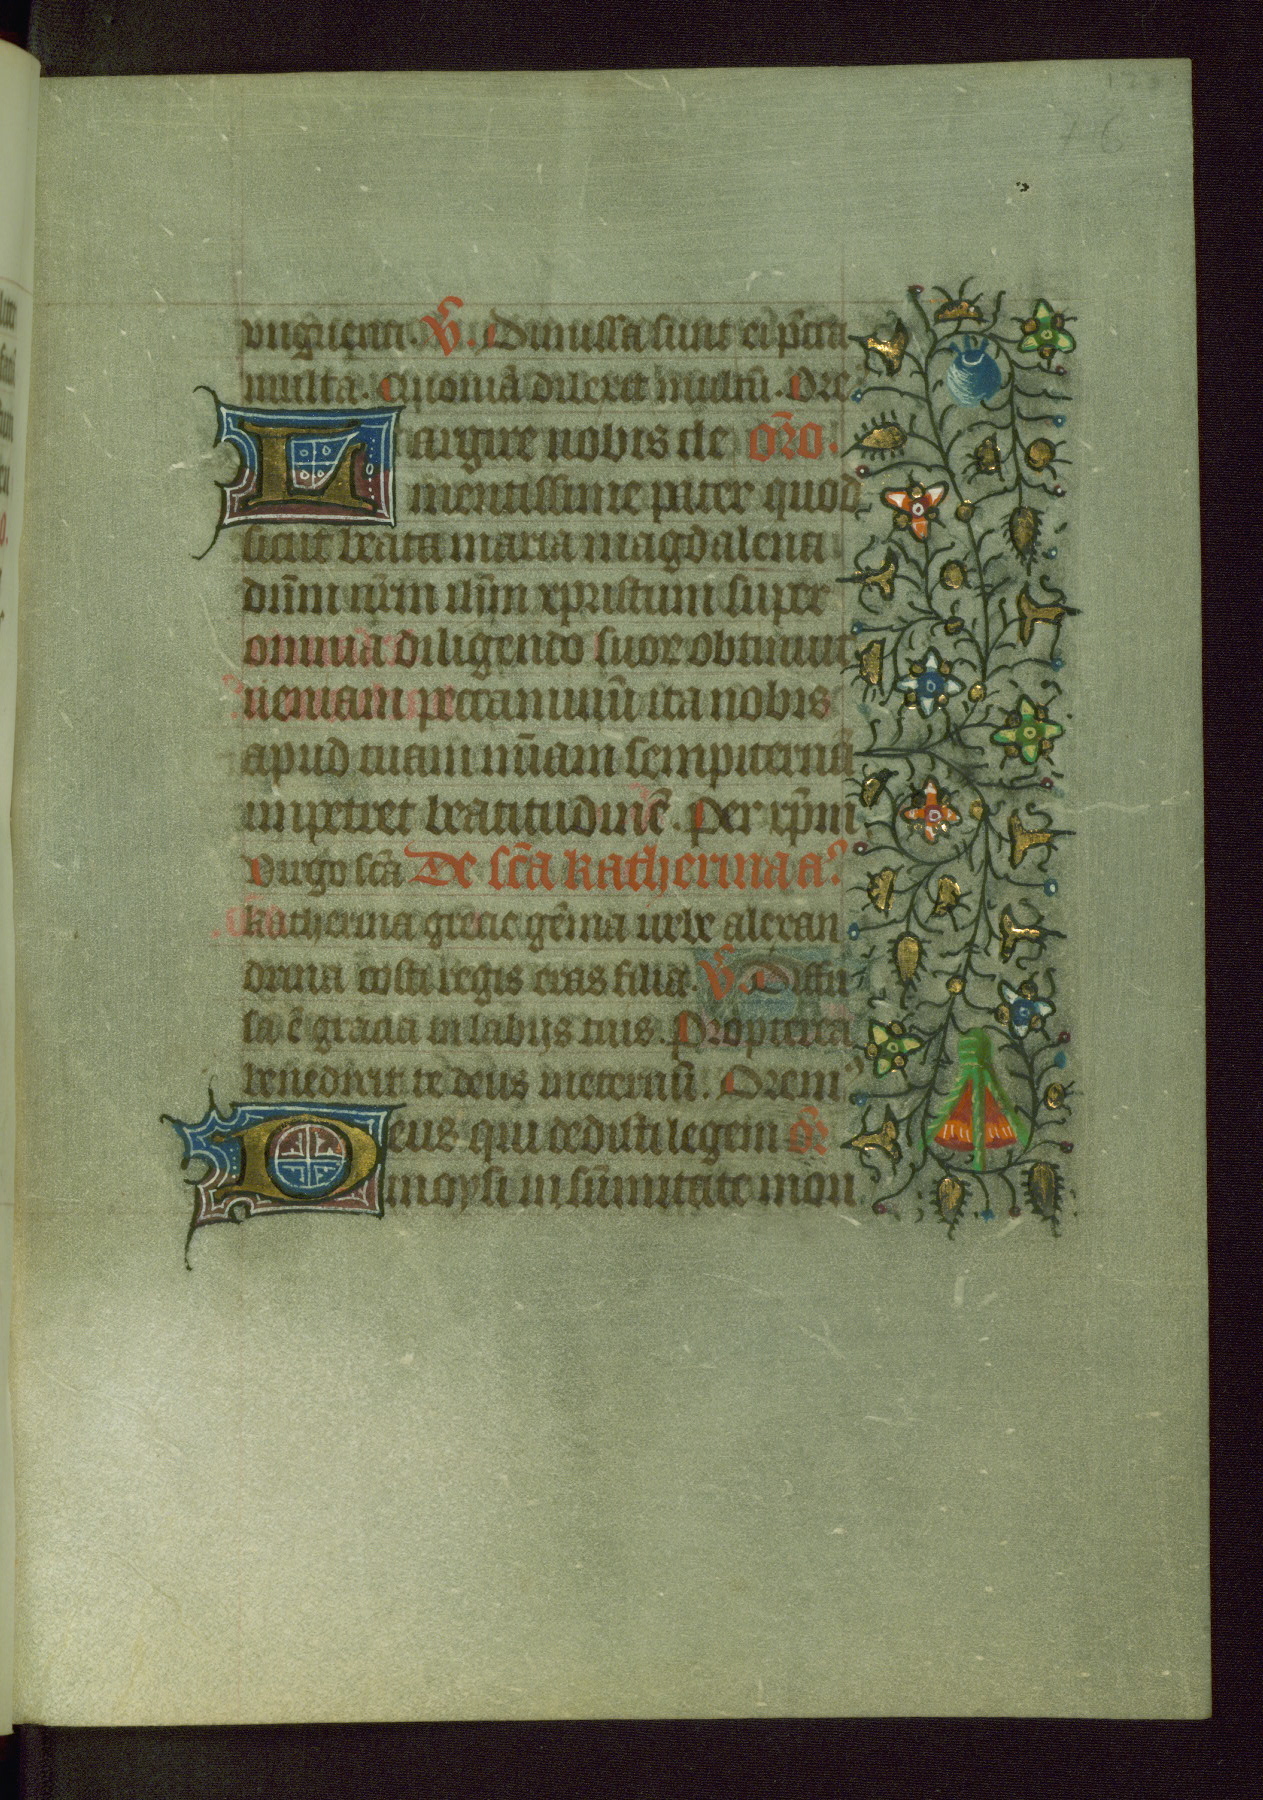 vnguenti. V̄. Dimissa sunt ei pc̄cā
multa. Quoniā dilexit multū. Ore
Largire nobis cle or̄o.
mentissime pater quod
sicut beata maria magdalena
dn̄m nr̄m ih̄m xpristum super
omnia diligendo suor obtinuit
ueniam peccaminū ita nobis
apud tuam mīam sempiternā
impetret beatitudinē. Per xp̄m
Virgo sc̄a De sc̄a katherina a᷒
katherina grecie gēma urbe alexan
drina costi regis eras filia. V̄. Diffu
sa ē gracia in labijs tuis. Propterea
benedixit te deus ineternū. Orem᷒
Deus qui dedisti legem or̄
moysi in sūmitate mon